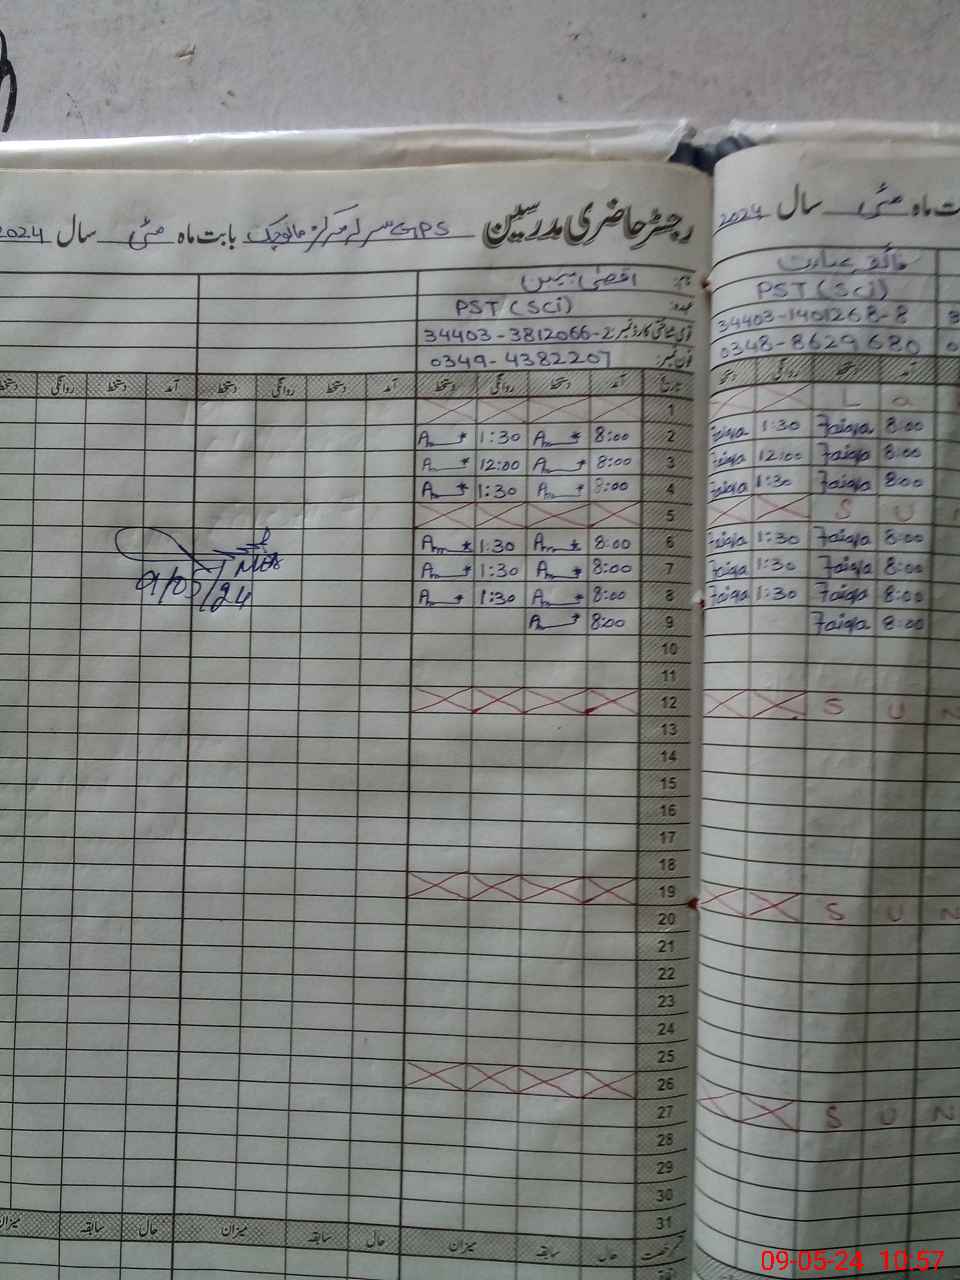 رجسٹر حاضری مدرسین GPS سرلہ مرکز مانوچک بابت ماہ مئی سال 2024
نام: اقصیٰ
عہدہ: PST (Sci)
قومی شناختی کارڈ نمبر: 34403-3812066-2
فون نمبر: 0349-4382207
تاریخ آمد دستخط روانگی دستخط آمد دستخط روانگی دستخط آمد دستخط روانگی دستخط
1
2 8:00 1:30
3 8:00 12:00
4 8:00 1:30
5
6 8:00 1:30
7 8:00 1:30
8 8:00 1:30
9 8:00
10
11
12
13
14
15
16
17
18
19
20
21
22
23
24
25
26
27
28
29
30
31
حال سابقہ میزان حال سابقہ میزان حال سابقہ میزان
9/05/24
ماہ مئی سال 2024
PST (Sci)
34403-1401268-8
0348-8629680
آمد دستخط روانگی دستخط
L a
8:00 Faiqa 1:30 Faiqa
8:00 Faiqa 12:00 Faiqa
8:00 Faiqa 1:30 Faiqa
S U
8:00 Faiqa 1:30 Faiqa
8:00 Faiqa 1:30 Faiqa
8:00 Faiqa 1:30 Faiqa
8:00 Faiqa
S U N
S U N
S U N
09-05-24 10:57